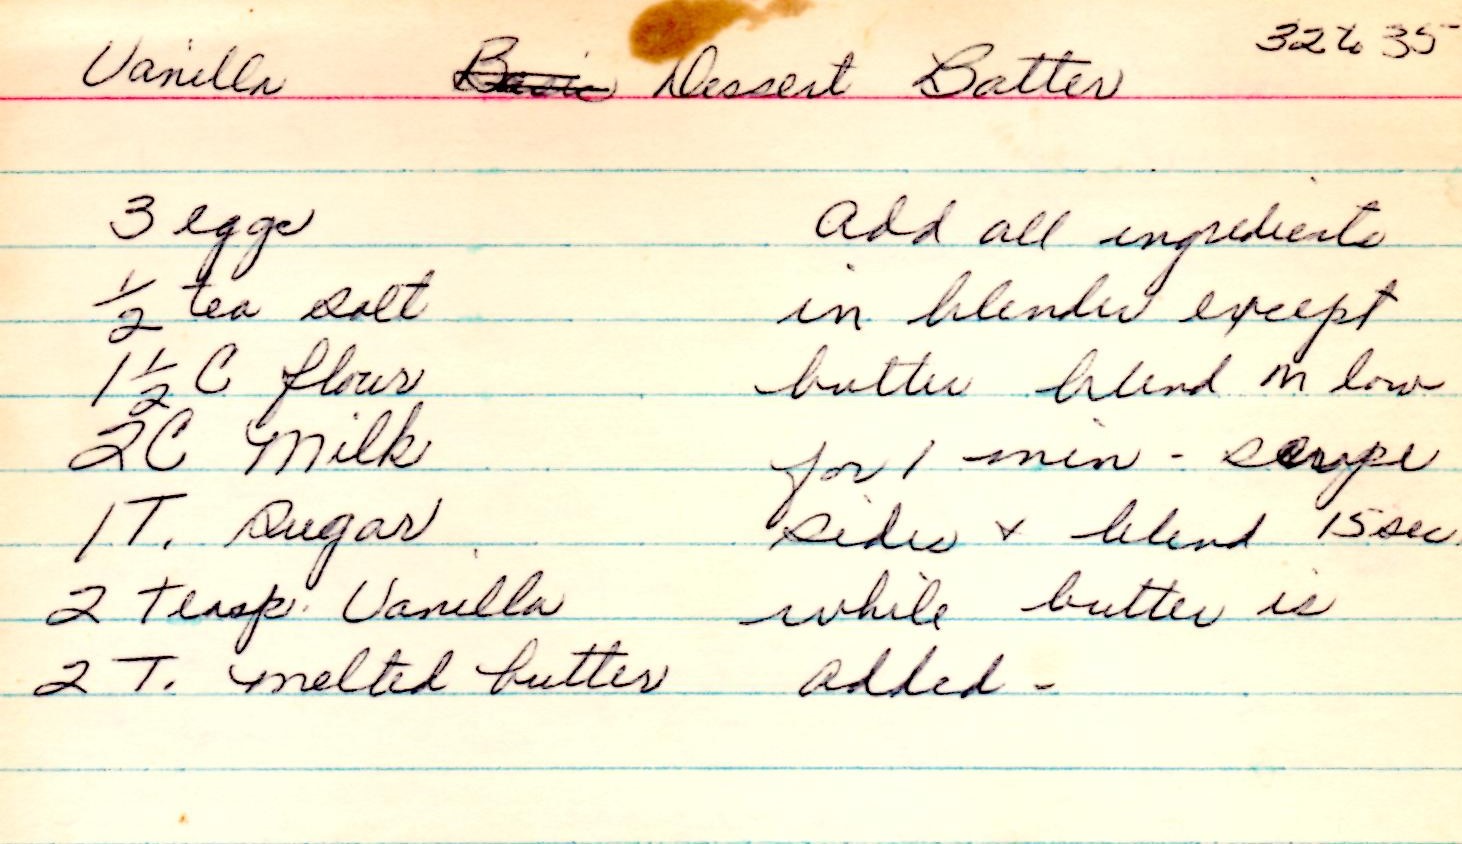 32 to 35
Vanilla Basic Dessert Batter
3 eggs
1/2 tea salt
1 1/2 C flour
2C Milk
1T. sugar
2 teasp. Vanilla
2 T. melted butter
Add all ingredients
in blender except
butter blend on low
for 1 min - scrape
sides + blend 15 sec.
while butter is
added -